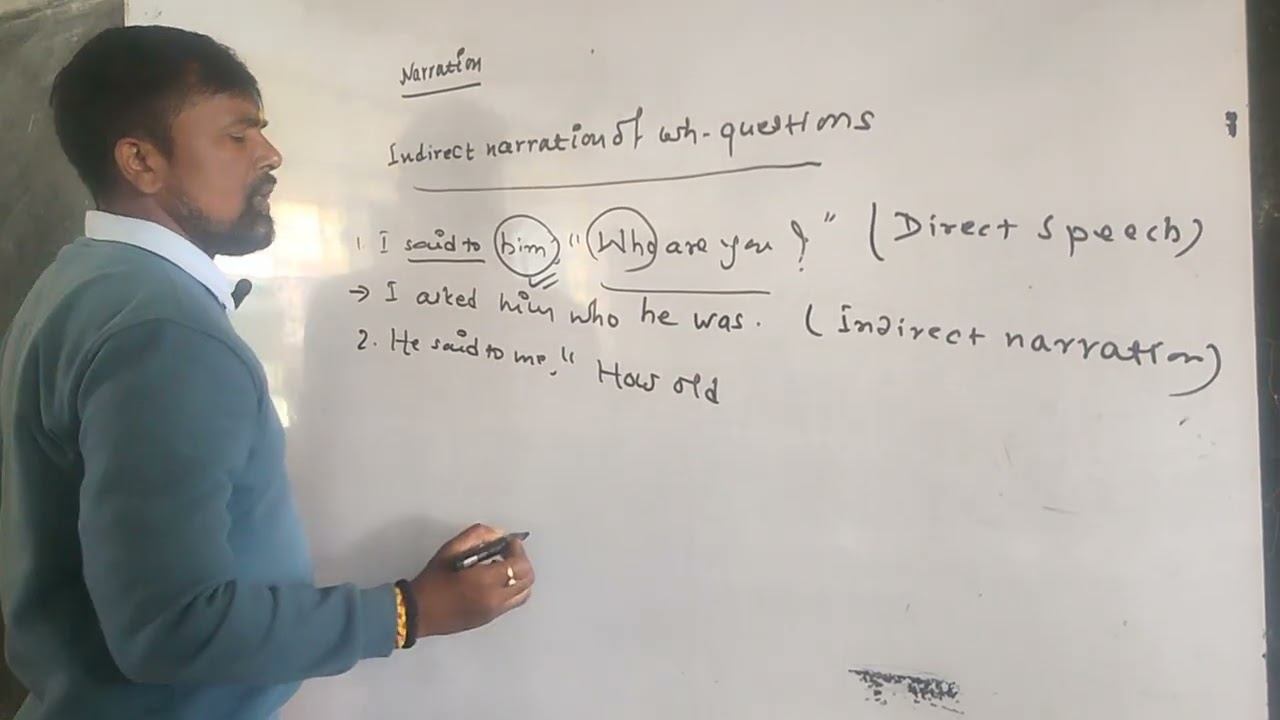 Narration
Indirect narration of wh-questions
1. I said to him, "Who are you?" (Direct speech)
→ I asked him who he was. (Indirect narration)
2. He said to me, "How old